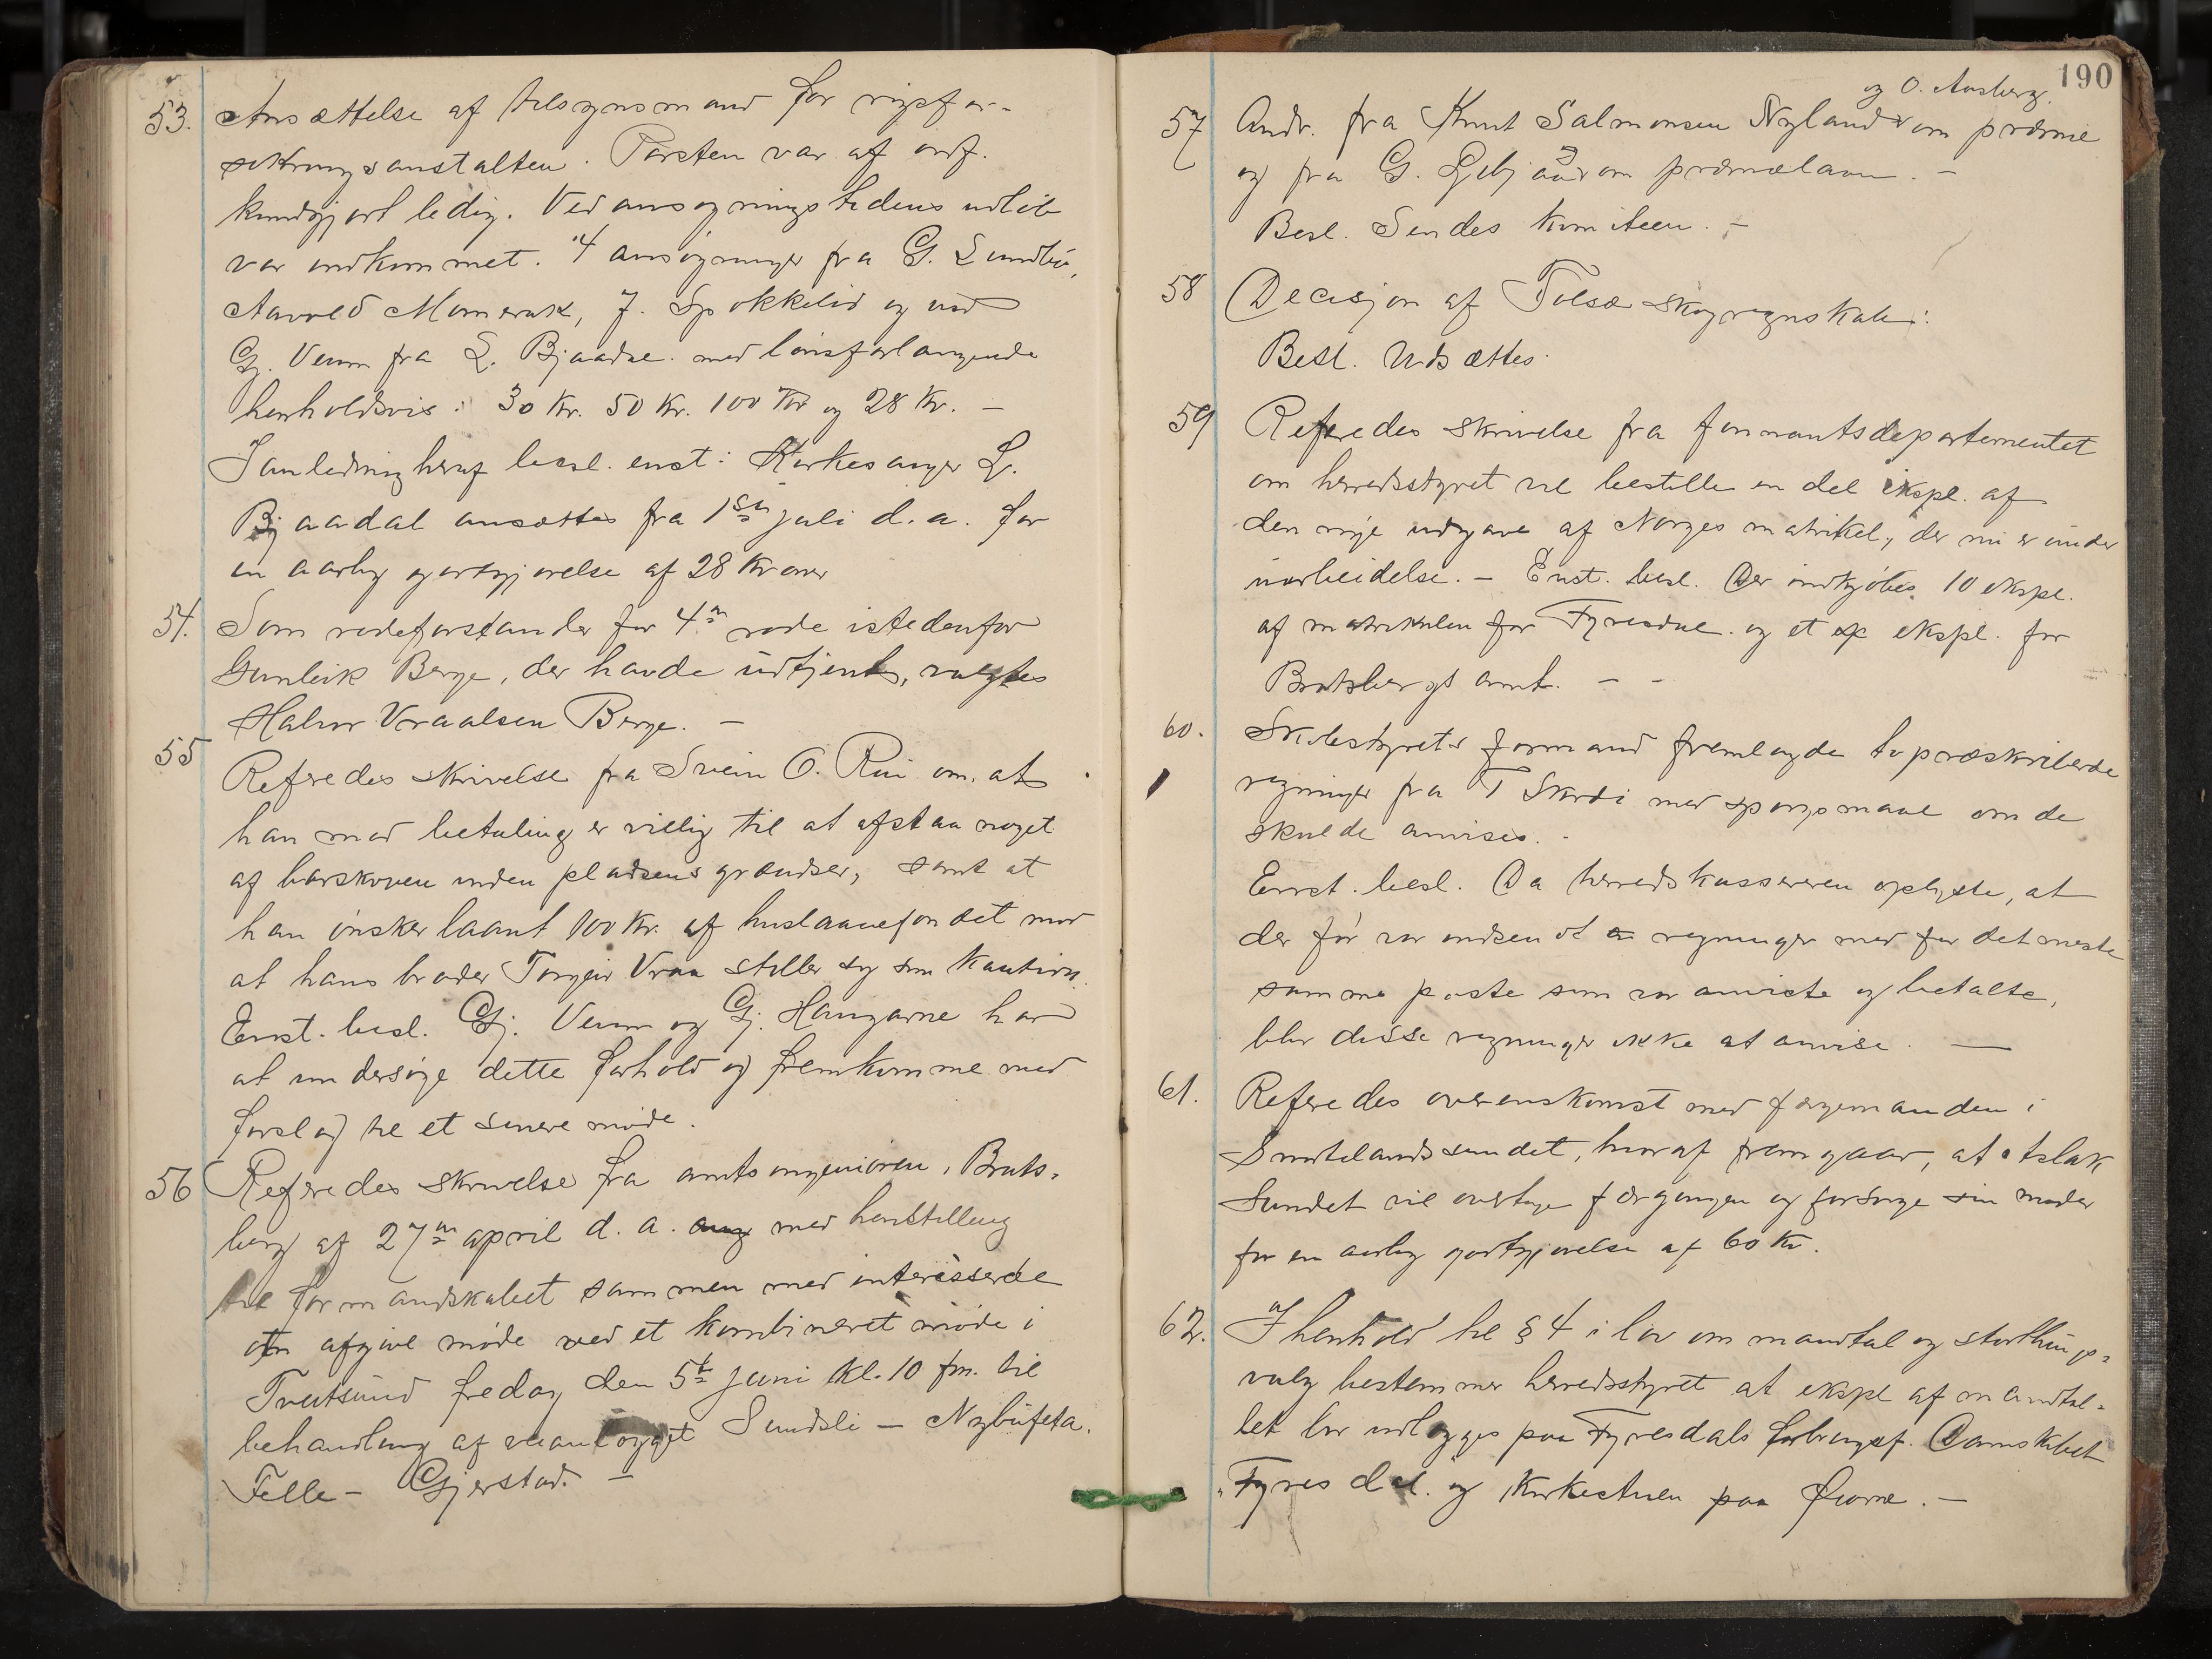 53. Ansættelse af tilsynsmand for rigsfor-
sikringsanstalten. Posten var af ordf.
kundgjort ledig. Ved ansøgningstidens udløb
var indkommet. 4 ansøgninger fra G. Sundbø,
Aavold Momrak, J. Spokkelid og ved
Gj. Veum fra L. Bjaadal med lønsforlangende
henholdsvis: 30 Kr. 50 Kr. 100 Kr og 28 Kr. –
I anledning heraf besl. enst: Kirkesanger L.
Bjaadal ansættes fra 1ste juli d. a. for
en aarlig godtgjørelse af 28 Kroner
54. Som rodeforstander for 4de rode istedenfor
Gunleik Berge, der havde udtjent, valgtes
Halvor Vraalsen Berge. –
55 Referedes skrivelse fra Svein O. Rui om at
han mod betaling er villig til at afstaa noget
af barskoven inden pladsens grændser, samt at
han ønsker laant 100 Kr. af huslaanefondet mod
at hans broder Torgeir Vraa stiller sig som kaution.
Enst. besl. Gj. Veum og Gj. Haugarne har
at undersøge dette forhold og fremkomme med
forslag til et senere møde.
56 Referedes skrivelse fra amtsingeniøren i Brats-
berg af 27de april d. a. med henstilling
til formandskabet sammen med interesserede
om afgive møde ved et kombineret møde i
Treitsund fredag den 5te juni kl. 10 fm. til
behandling af veianlægget Sundsli – Nybufeta.
Felle – Gjerstad. –
190
og O. Aasberg.
57 Andr. fra Knut Salmonsen Nyland om præmie
og fra G. om præmielaan. –
Besl. Sendes komiteen. –
58 Decisjon af Tolsæ skogregnskab:
Besl. Udsættes.
59 Referedes skrivelse fra finnantsdepartementet
om herredsstyret vil bestille en del ekspl. af
den nye udgave af Norges matrikel, der nu er under
uarbeidelse. – Enst. besl. Der indkjøbes 10 ekspl.
af matrikulen for Fyresdal og et ex ekspl. for
Bratsbergs amt. – –
60. Skolestyrets formand fremlagde to præskriberede
regninger fra T Skrdi med spørgsmaal om de
skulde anvises. –
Enst. besl. Da herredskassereren oplyste, at
der før var indsendt regninger med for det meste
samme poste som var anviste og betalte,
blir disse regninger ikke at anvise. –
61. Referedes overenskomst med færgemanden i
Smutelandssundet, hvoraf fremgaar, at Aslak
Sundet vil overtage færgingen og forsørge sin moder
for en aarlig godtgjørelse af 60 Kr.
62. I henhold til § 4 i lov om mandtal og storthings-
valg bestemmer herredsstyret at ekspl af mandtal-
let bør udlægges paa Fyresdals forbrugsf. Damskibet
"Fyresdal" og Kirkestuen paa Øivræ. –